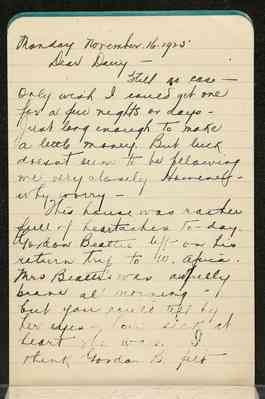 Monday November 16. 1925
Dear Dairy —
Still no case —
Only wish I could get one
for a few nights or days -
just long enough to make
a little money. But luck
doesn't seem to be following
me very closely. However -
why worry -
This house was rather
full of heartaches to-day.
Gordon Beattie left on his
return trip to W. Africa.
Mrs Beattie was awfully
brave all morning -
but you could tell by
her eyes how sick at
heart she was. I
think Gordon B. felt